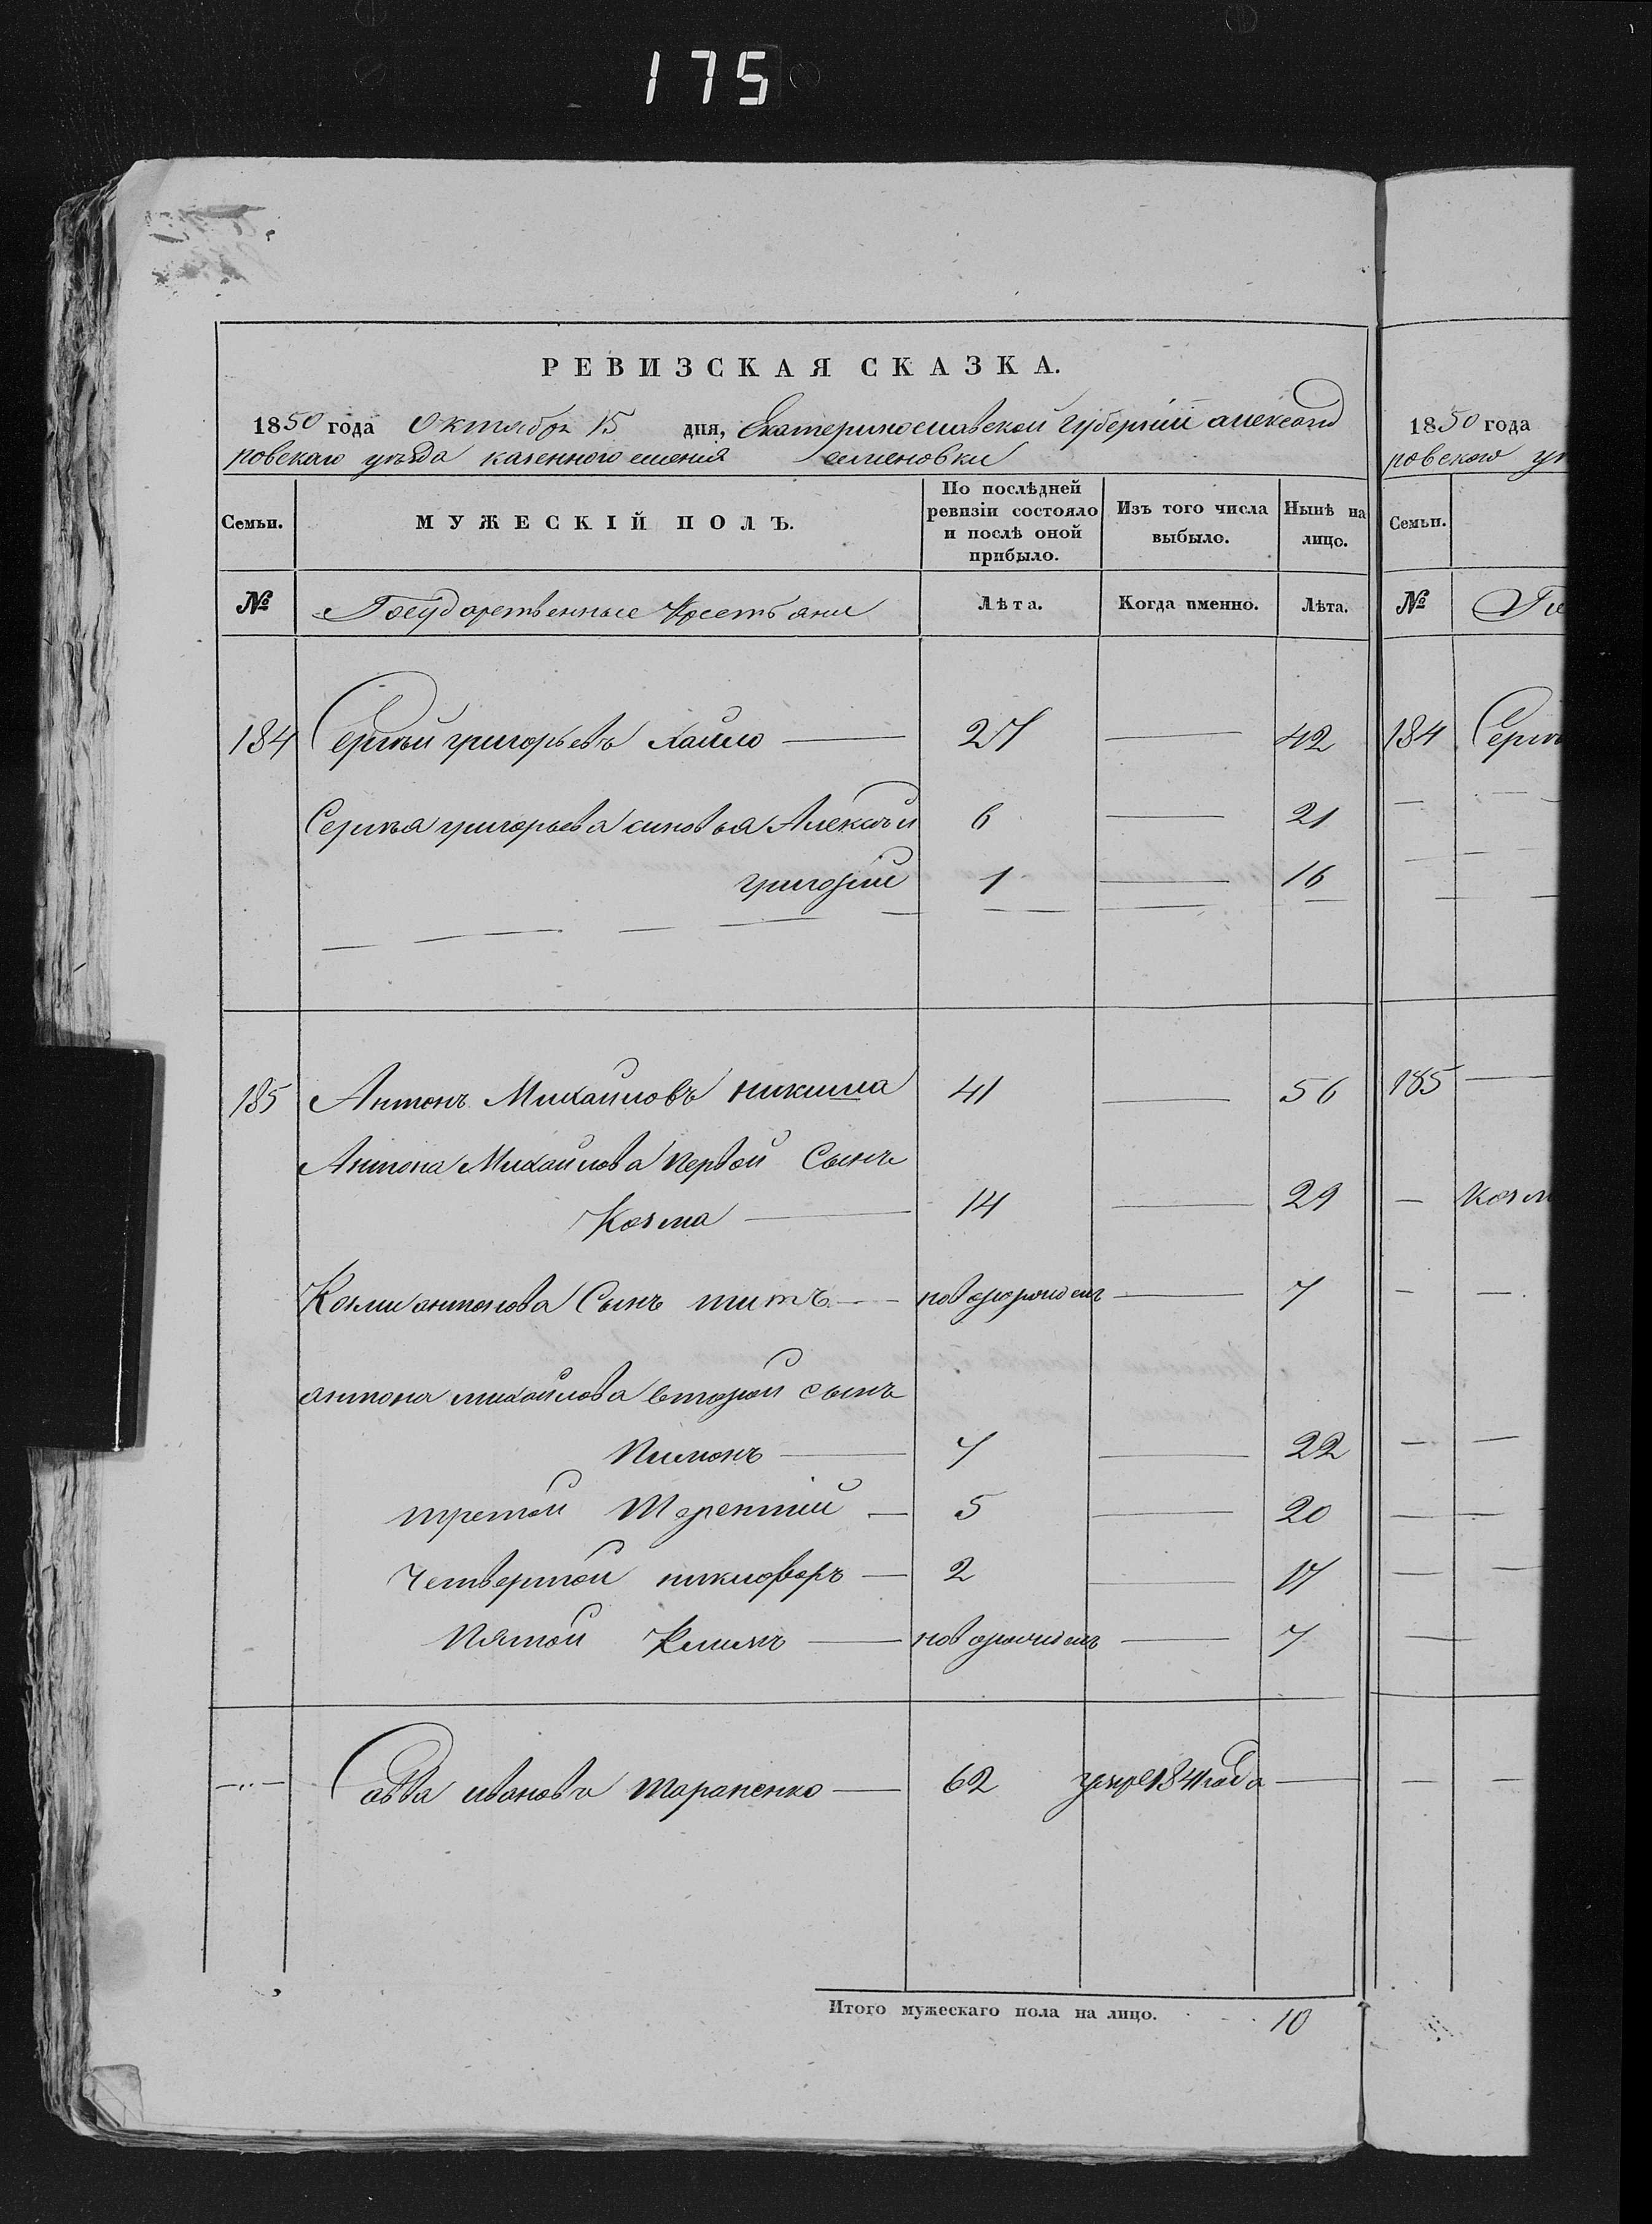 175
РЕВИЗСКАЯ СКАЗКА.
1850 года Октября 15 дня, Екатеринославской губерніи александ
ровскаго уѣзда казенного селенія семеновки
Семьи.
МУЖЕСКІЙ ПОЛЪ.
По послѣдней ревизіи состояло и послѣ оной прибыло.
Изъ того числа выбыло.
Нынѣ на лицо.
№
Государственные Крестьяни
Лѣта.
Когда именно.
Лѣта.
184 Сергѣй григорьевъ хайло — 27 — 42
Сергѣя григорьева синовья Алексѣй 6 — 21
григорій 1 — 16
185 Антонъ Михайловъ 41 — 56
Антона Михайлова первой Сынъ
Козма — 14 — 29
Козми антонова Сынъ титъ — новорожденъ — 7
антона михайлова второй сынъ
Пимонъ — 7 — 22
третой Терентий — 5 — 20
Четвертой никифоръ — 2 — 17
Пятой Климъ — новорожденъ — 7
Савва ивановъ тараненко — 62 умре 1841 года —
Итого мужескаго пола на лицо. 10
1850 года
ровского
Семьи.
№
184
185